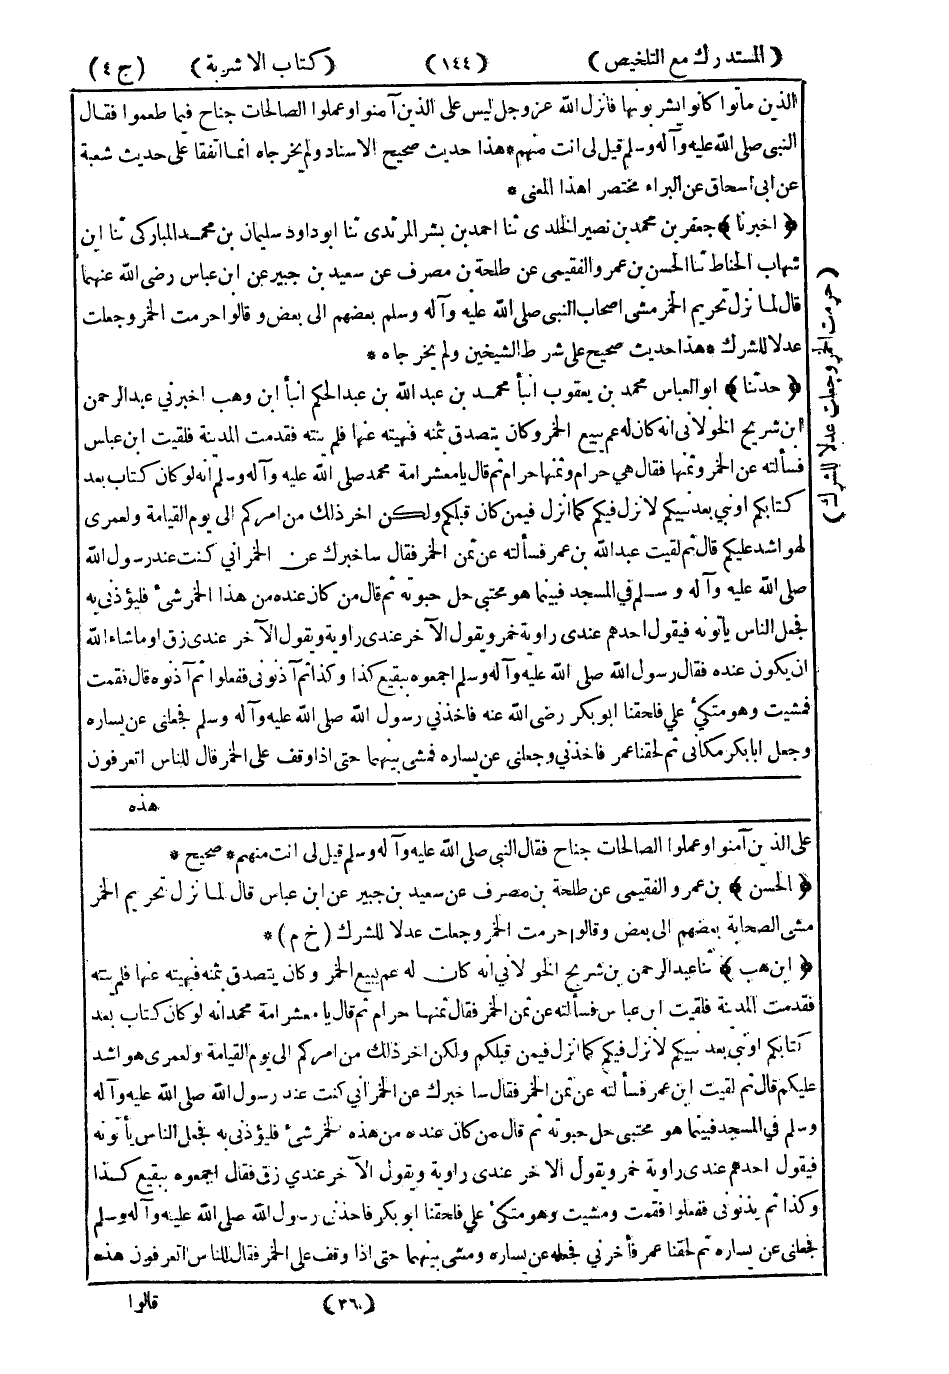 (المستدرك مع التلخيص) (١٤٤) (كتاب الاشربة) (ج ٤)
الذين ماتوا كانوا يشربونها فانزل الله عز وجل ليس على الذين آمنوا وعملوا الصالحات جناح فيما طعموا فقال
النبي صلى الله عليه وآله وسلم قيل لى انت منهم * هذا حديث صحيح الاسناد ولم يخرجاه انما اتفقا على حديث شعبة
عن ابى اسحاق عن البراء مختصر اهذا المعنى *
﴿ اخبرنا ﴾ جعفر بن محمد بن نصير الخلدى ثنا احمد بن بشر المرثدى ثنا ابو داود سليمان بن محمد المباركى ثنا ابن
شهاب الحناط ثنا الحسن بن عمرو الفقيمى عن طلحة بن مصرف عن سعيد بن جبير عن ابن عباس رضى الله عنهما
قال لما نزل تحريم الخمر مشى اصحاب النبى صلى الله عليه وآله وسلم بعضهم الى بعض وقالوا حرمت الخمر وجعلت
عدلا للشرك * هذا حديث صحيح على شرط الشيخين ولم يخرجاه *
﴿ حدثنا ﴾ ابو العباس محمد بن يعقوب انبأ محمد بن عبد الله بن عبد الحكم انبأ ابن وهب اخبرني عبد الرحمن
ابن شريح الخولانى انه كان له عم يبيع الخمر وكان يتصدق بثمنه فنهيته عنها فلم ينته فقدمت المدينة فلقيت ابن عباس
فسألته عن الخمر وثمنها فقال هي حرام وثمنها حرام ثم قال يا معشر امة محمد صلى الله عليه وآله وسلم انه لو كان كتاب بعد
كتابكم اونبى بعد نبيكم لانزل فيكم كما انزل فيمن كان قبلكم ولكن اخر ذلك من امركم الى يوم القيامة ولعمرى
لهو اشد عليكم قال ثم لقيت عبد الله بن عمر فسألته عن ثمن الخمر فقال ساخبرك عن الخمر انى كنت عند رسول الله
صلى الله عليه وآله وسلم في المسجد فبينما هو محتبى حل حبوته ثم قال من كان عنده من هذا الخمر شئ فليؤذنى به
فجعل الناس يأتونه فيقول احدهم عندى راوية خمر ويقول الآخر عندى راوية ويقول الآخر عندى زق او ما شاء الله
ان يكون عنده فقال رسول الله صلى الله عليه وآله وسلم اجمعوه ببقيع كذا وكذا ثم آذنونى ففعلوا ثم آذنوه قال فقمت
فمشيت وهو متكئ علي فلحقنا ابو بكر رضى الله عنه فاخذني رسول الله صلى الله عليه وآله وسلم فجعلنى عن يساره
وجعل ابا بكر مكانى ثم لحقنا عمر فاخذني وجعلنى عن يساره فمشى بينهما حتى اذا وقف على الخمر قال للناس اتعرفون
هذه
(حرمت الخمر وجعلت عدلا للشرك)
على الذين آمنوا وعملوا الصالحات جناح فقال النبي صلى الله عليه وآله وسلم قيل لى انت منهم * صحيح *
﴿ الحسن ﴾ بن عمرو الفقيمى عن طلحة بن مصرف عن سعيد بن جبير عن ابن عباس قال لما نزل تحريم الخمر
مشى الصحابة بعضهم الى بعض وقالوا حرمت الخمر وجعلت عدلا للشرك (خ م) *
﴿ ابن هب ﴾ ثنا عبد الرحمن بن شريح الخولاني انه كان له عم يبيع الخمر وكان يتصدق بثمنه فنهيته عنها فلم ينته
فقدمت المدينة فلقيت ابن عباس فسألته عن ثمن الخمر فقال ثمنها حرام ثم قال يا معشر امة محمد انه لو كان كتاب بعد
كتابكم اونبى بعد نبيكم لانزل فيكم كما انزل فيمن قبلكم ولكن اخر ذلك من امركم الى يوم القيامة ولعمرى هو اشد
عليكم قال ثم لقيت ابن عمر فسألته عن ثمن الخمر فقال ساخبرك عن الخمر انى كنت عند رسول الله صلى الله عليه وآله
وسلم في المسجد فبينما هو محتبى حل حبوته ثم قال من كان عنده من هذه الخمر شئ فليؤذنى به فجعل الناس يأتونه
فيقول احدهم عندى راوية خمر ويقول الاخر عندى راوية ويقول الآخر عندي زق فقال اجمعوه ببقيع كذا
وكذا ثم يذنونى ففعلوا فقمت ومشيت وهو متكئ علي فلحقنا ابو بكر فاخذنى رسول الله صلى الله عليه وآله وسلم
فجعلنى عن يساره ثم لحقنا عمر فأخرني فجعله عن يساره ومشى بينهما حتى اذا وقف على الخمر فقال للناس اتعرفون هذه
(٣٦) قالوا